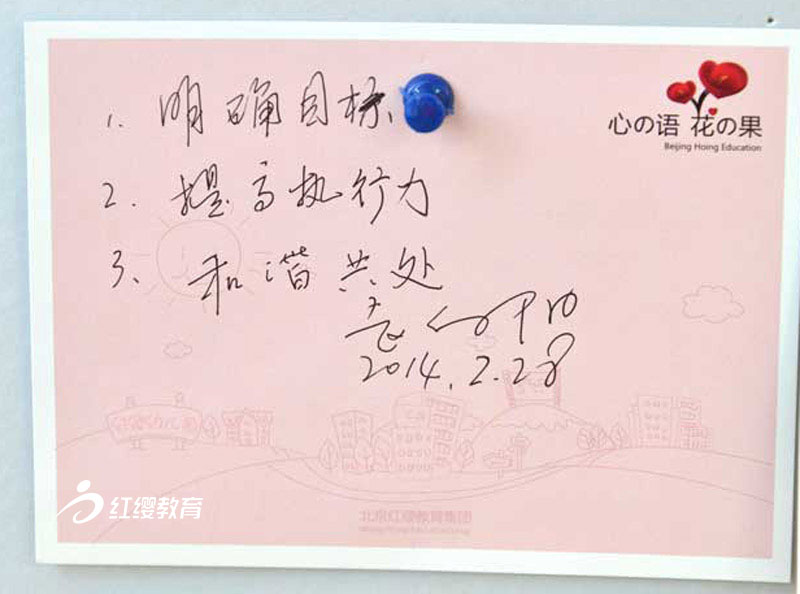 1. 明确目标
心の语 花の果
Beijing Hoing Education
2. 提高执行力
3、和谐共处
2014.2.28
红缨教育
北京红缨教育集团